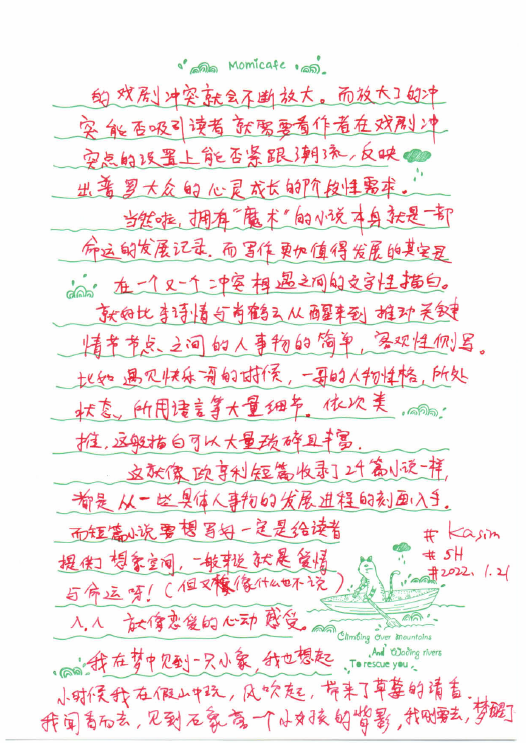 Momicafe
的戏剧冲突就会不断放大。而放大了的冲
突能否吸引读者就需要看作者在戏剧冲
突点的设置上能否紧跟潮流,反映
出普罗大众的心灵成长的阶段性需求。
当然啦,拥有“魔术”的小说本身就是一部
命运的发展记录.而写作更加值得发展的其实是
在一个又一个冲突相遇之间的文字性描白。
就好比李诗情与肖鹤云从醒来到推动关键
情节节点之间的人事物的简单,客观性侧写。
比如遇见快乐哥的时候,一哥的人物性格,所处
状态,所用语言等大量细节。依次类
推,这般描白可以大量琐碎且丰富.
这就像欧亨利短篇收录了24篇小说一样,
都是从一些具体人事物的发展进程的刻画入手.
而短篇小说要想写好一定是给读者
提供了想象空间,一般来说就是爱情
与命运呀!(但又想像什么也不说)
^.^ 放像恋爱的心动感受。
我在梦中见到一只小象,我也想起
小时候我在假山中玩,风吹起,带来了草莓的清香.
我闻香而去,见到石象旁一个小女孩的背影,我刚要去,梦醒了
# Kasim
# SH
# 2022.1.21
Climbing over mountains
And Wading rivers
To rescue you